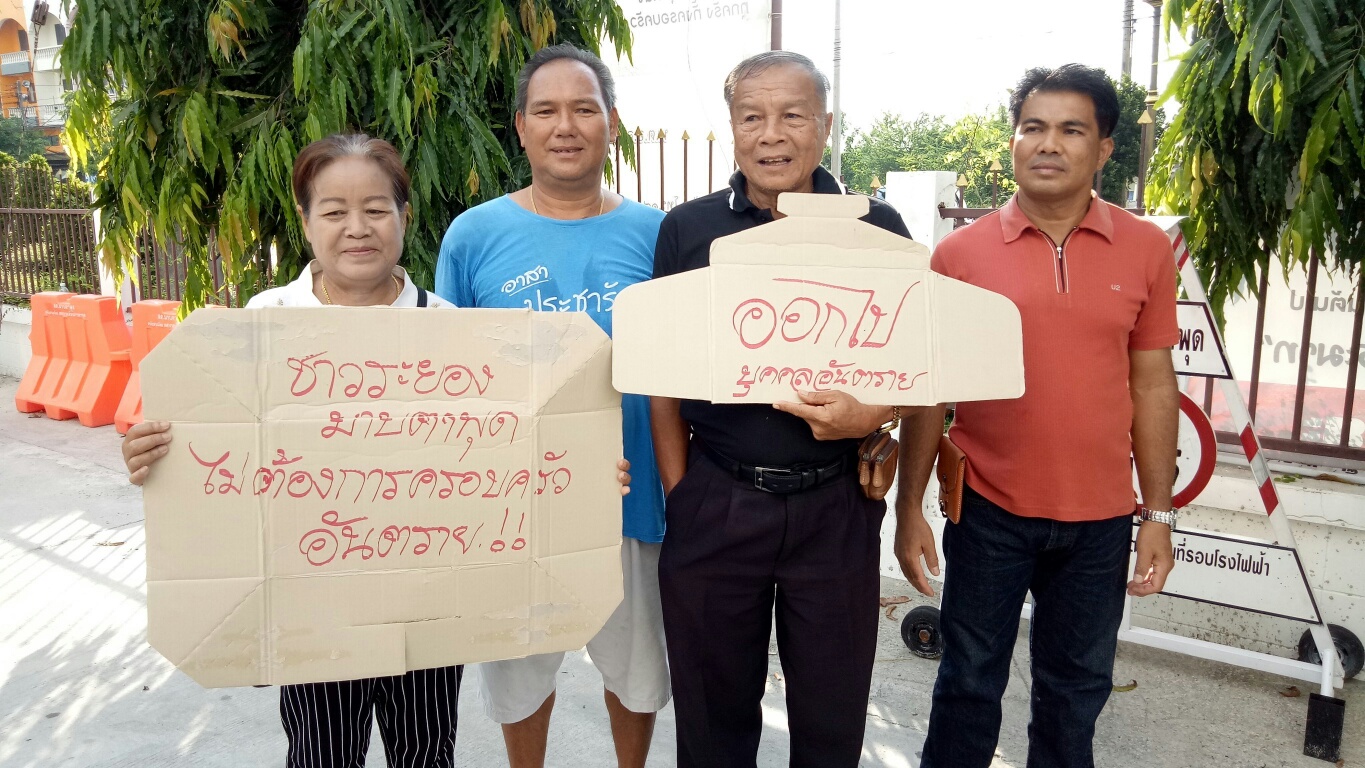 ชาวระยอง
มาบตาพุด
ไม่ต้องการครอบครัว
อันตราย.!!
ออกไป
บุคคลอันตราย
อาสา
ประชารั
พุด
ที่รอบโรงไฟฟ้า